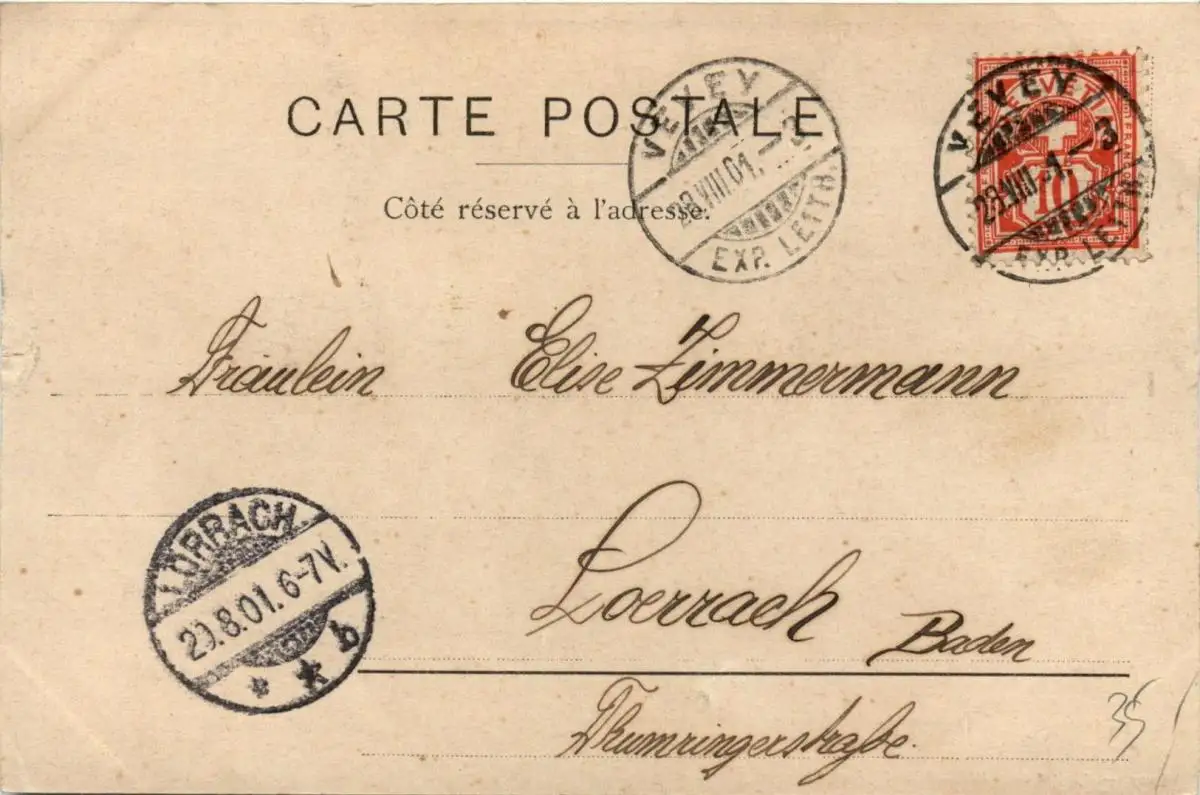 CARTE POSTALE
Côté réservé à l'adresse.
VEVEY
28.VIII.01.–3
EXP. LETTR.
VEVEY
28.VIII. 1.–3
EXP. LETTR.
HELVETIA
FRANCO
10
Fräulein Elise Zimmermann
Loerrach Baden
Thumringerstraße.
LÖRRACH.
29.8.01. 6-7V.
* * b
35